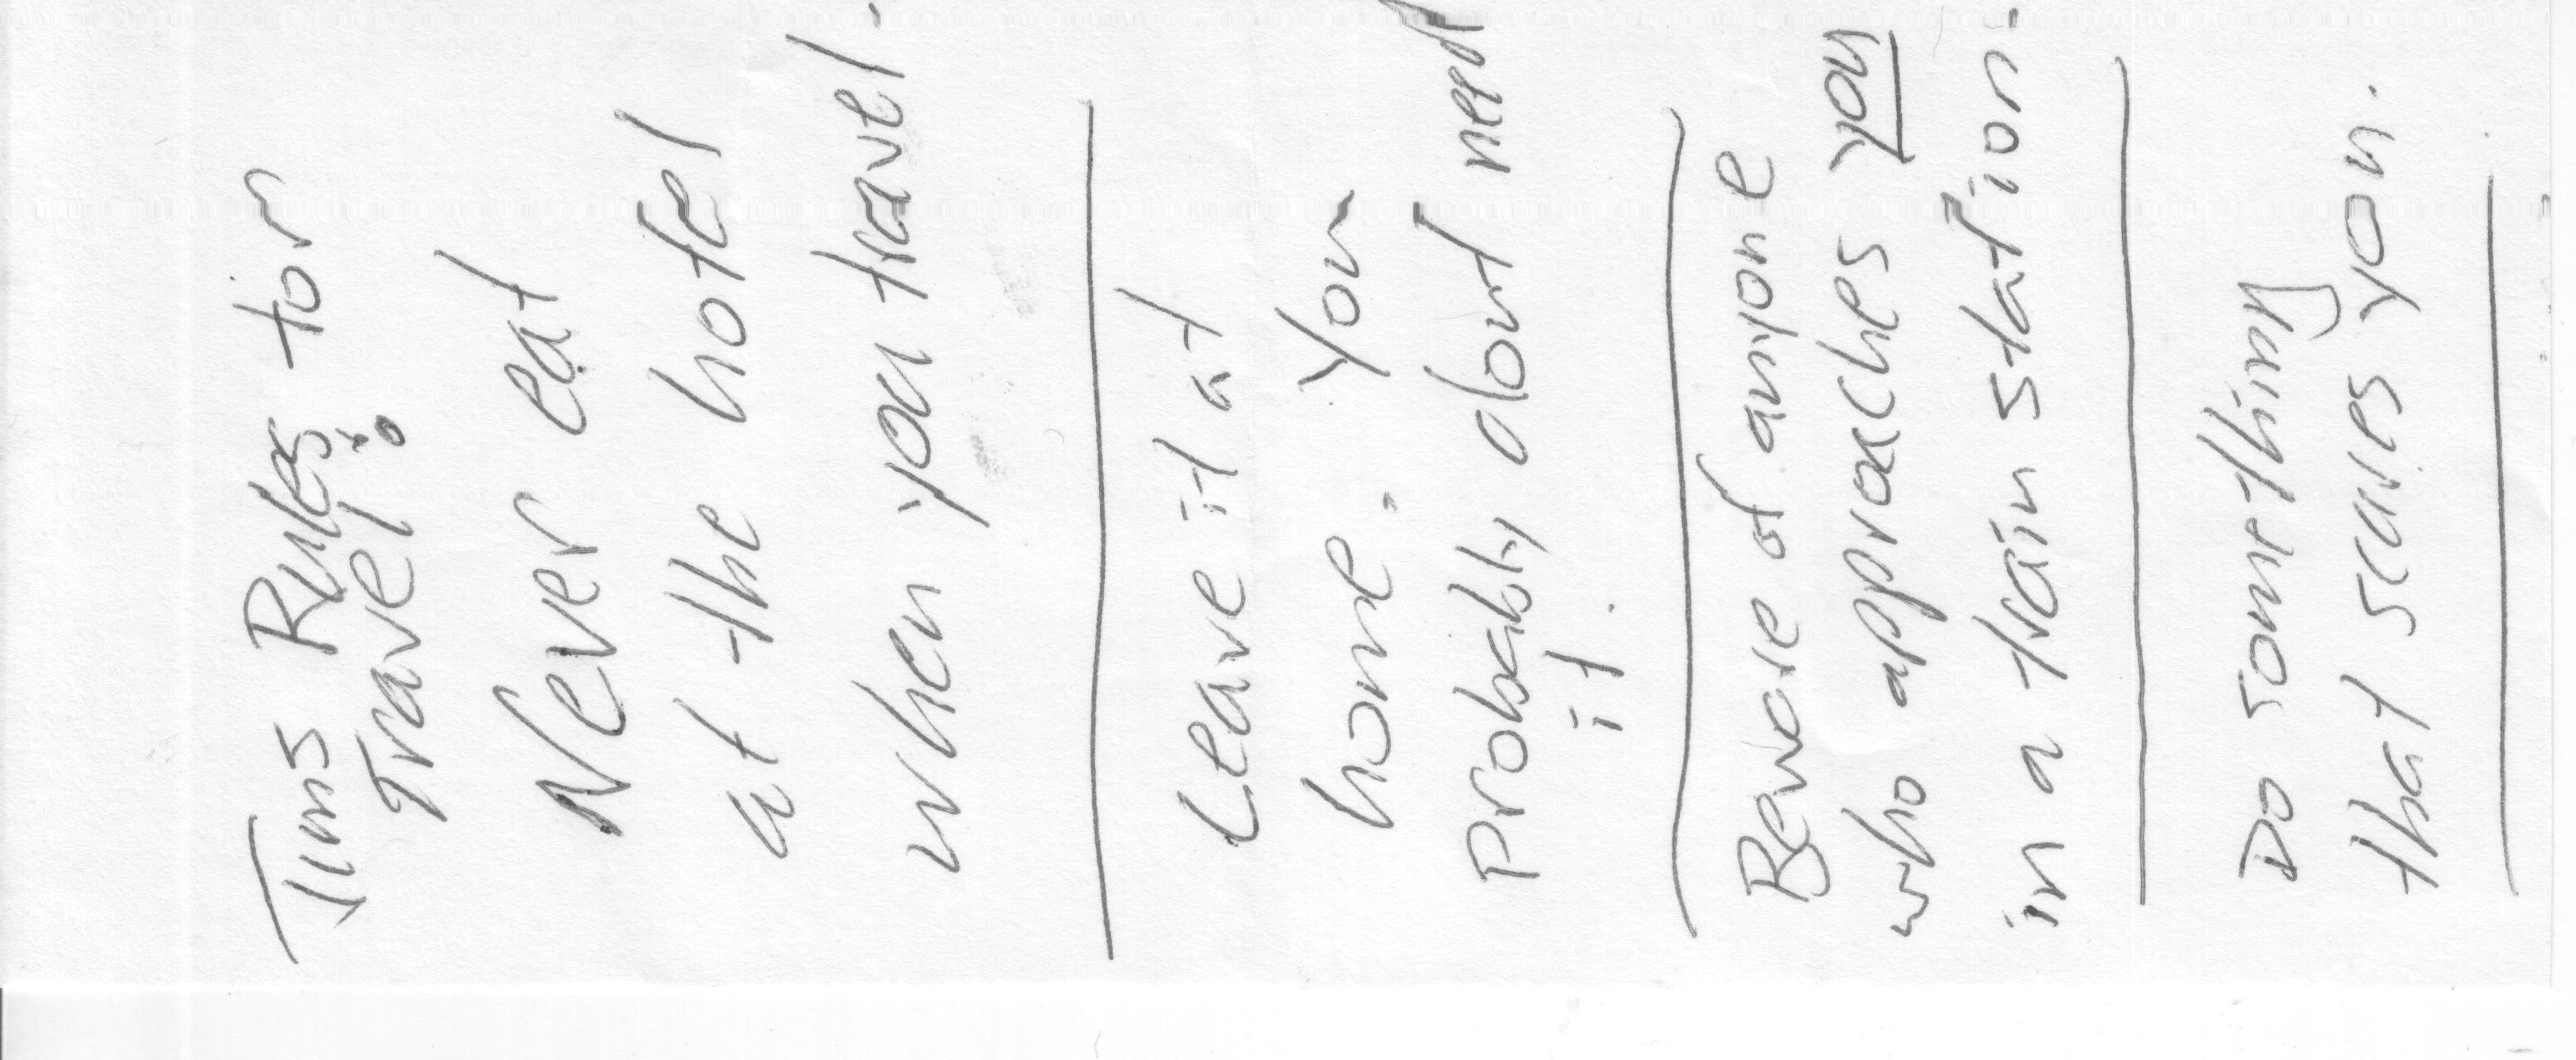 Tims Rules for
Travel:
Never eat
at the hotel
when you travel.
Leave it at
home. You
Probably dont need
it.
Beware of anyone
who approaches you
in a train station.
Do something
that scares you.